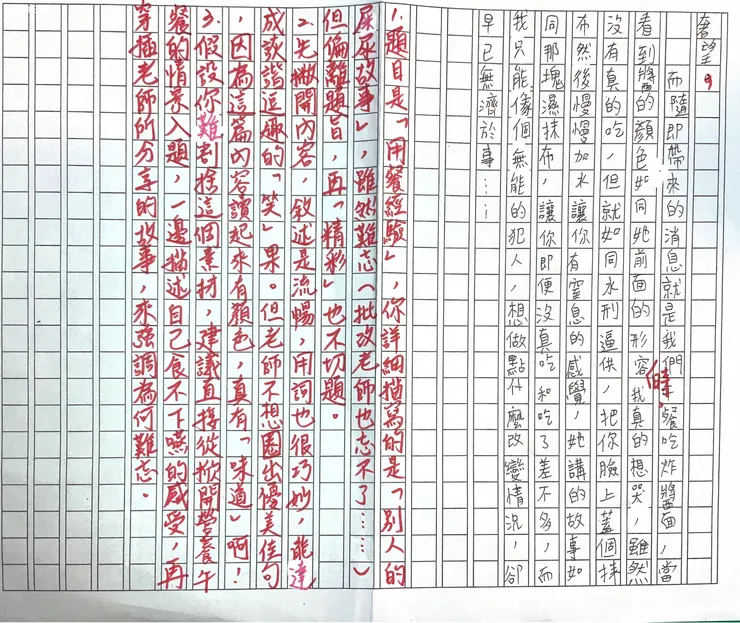 奢望。
而隨即帶來的消息就是我們午餐吃炸醬面,當
看到醬的顏色如同她前面的形容時,我真的想哭,雖然
沒有真的吃,但就如同水刑逼供,把你臉上蓋個抹
布然後慢慢加水讓你有窒息的感覺,她講的故事如
同那塊濕抹布,讓你即便沒真吃和吃了差不多,而
我只能像個無能的犯人,想做點什麼改變情況,卻
早已無濟於事……
1.題目是「用餐經驗」,你詳細描寫的是「別人的
屎尿故事」,雖然難忘(批改老師也忘不了……)
但偏離題旨,再「精彩」也不切題。
2.先撇開內容,敘述是流暢,用詞也很巧妙,能達
成詼諧逗趣的「笑」果。但老師不想圈出優美佳句
,因為這篇內容讀起來有顏色,真有「味道」啊!
3.假設你難割捨這個素材,建議直接從掀開營養午
餐的情景入題,一邊描述自己食不下嚥的感受,再
穿插老師所分享的故事,來強調為何難忘。